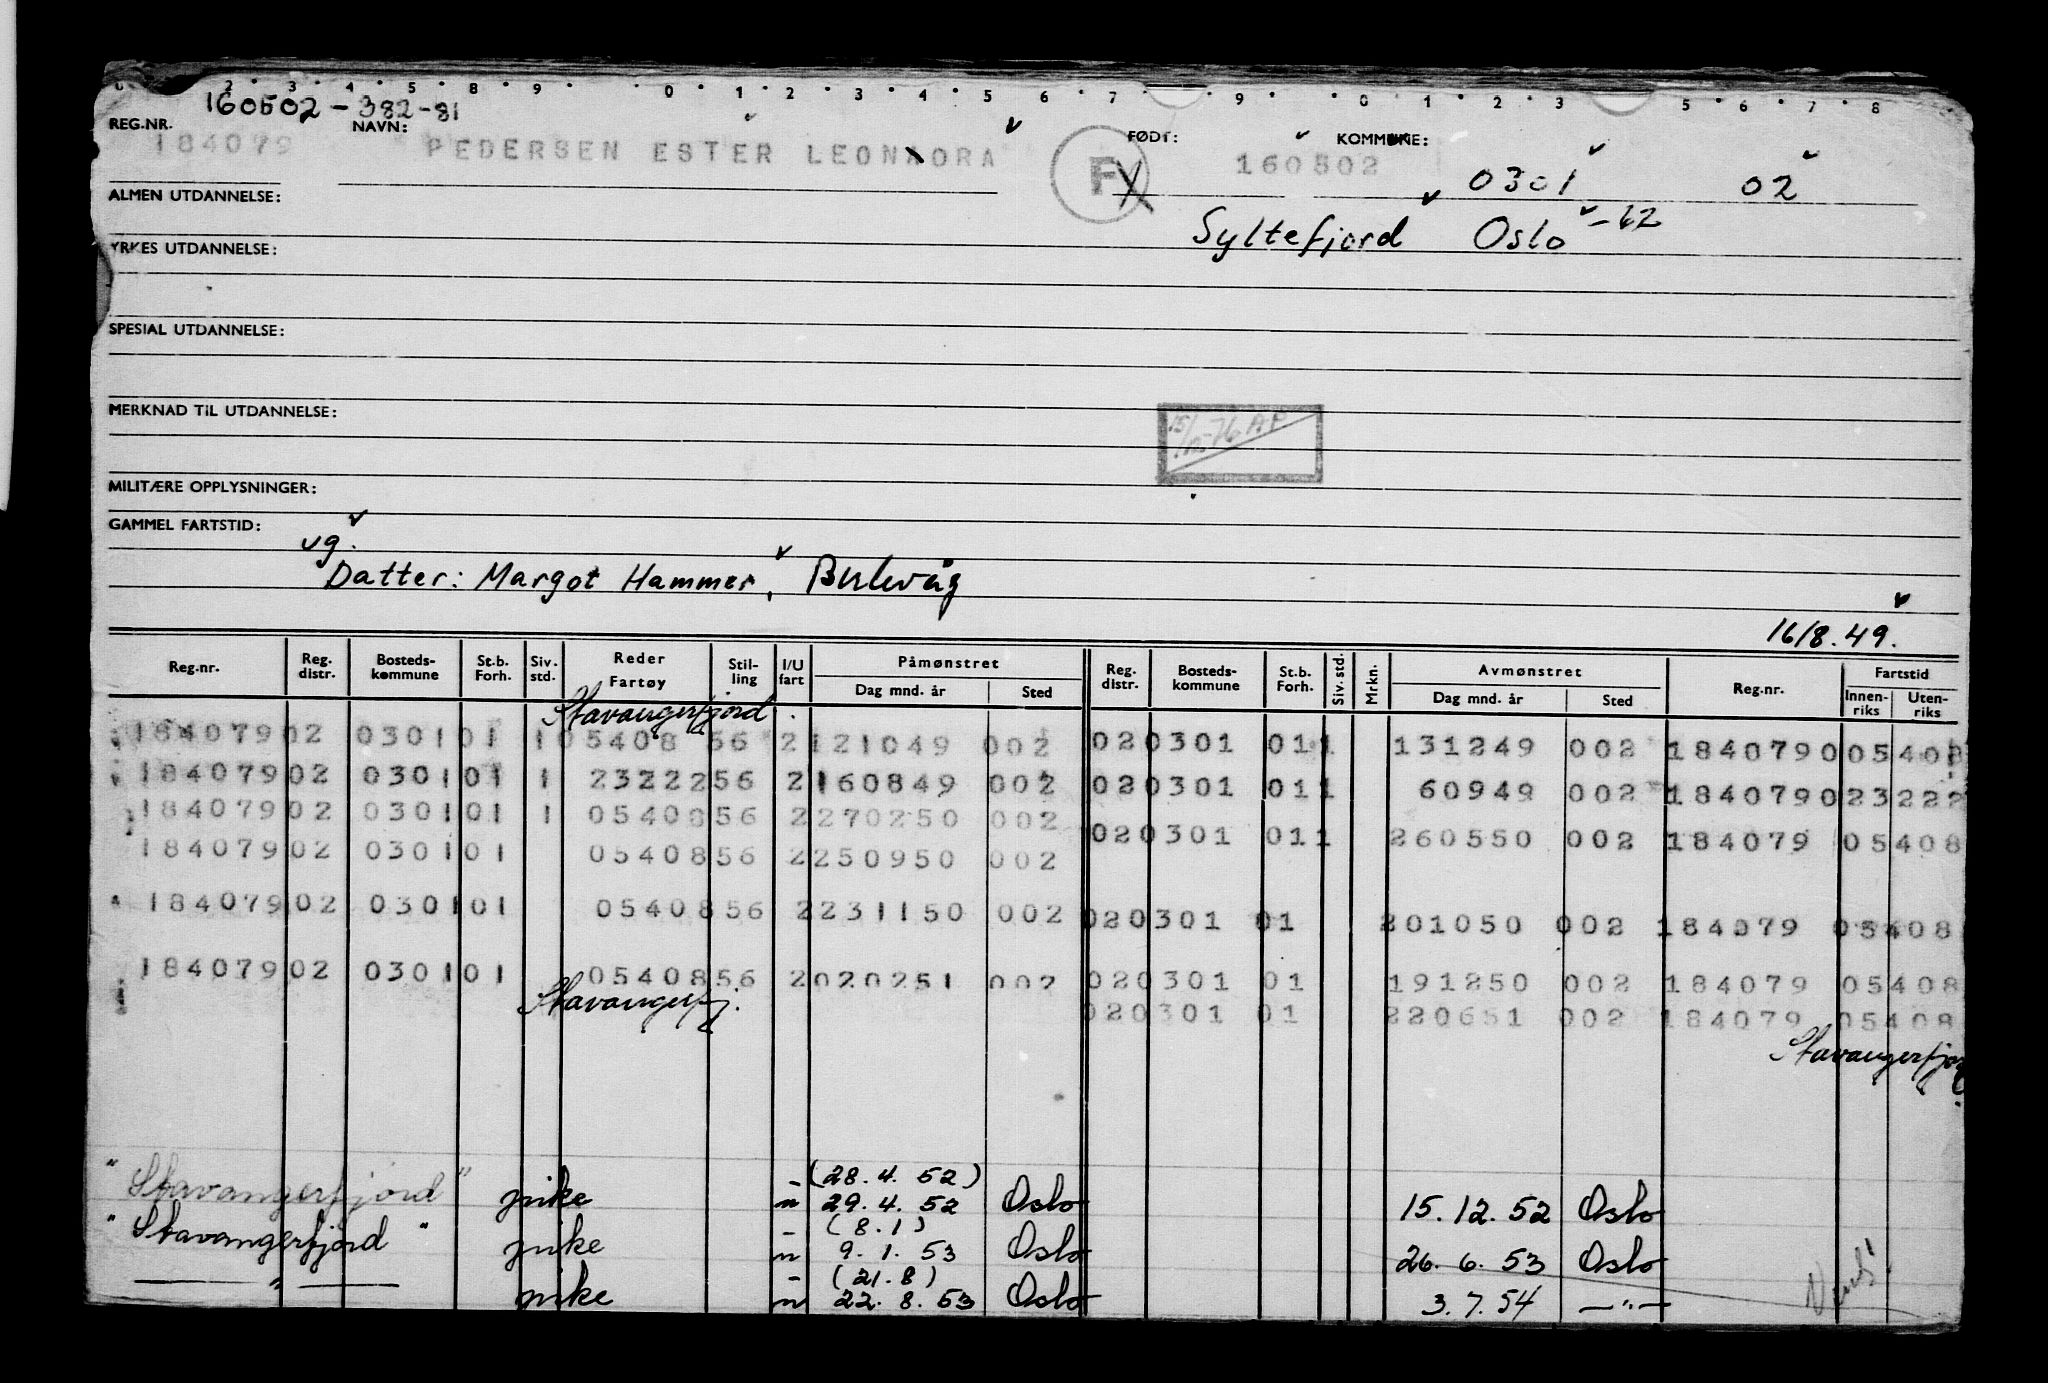 2 3 4 5 8 9 0 1 2 3 4 5 6 7 9 0 1 2 3 5 6 7 8
160502-382-81
REG.NR. NAVN: FØDT: KOMMUNE:
184079 PEDERSEN ESTER LEONORA F 160502 0301 02
ALMEN UTDANNELSE:
Syltefjord Oslo -62
YRKES UTDANNELSE:
SPESIAL UTDANNELSE:
MERKNAD TIL UTDANNELSE:
15/12-76 A.P
MILITÆRE OPPLYSNINGER:
GAMMEL FARTSTID:
vg.
Datter: Margot Hammer, Bulevåg
16/8.49.
Reg.nr. Reg. distr. Bosteds-kommune St.b. Forh. Siv. std. Reder Fartøy Stil-ling I/U fart Påmønstret Dag mnd. år Sted Reg. distr. Bosteds-kommune St.b. Forh. Siv. std. Mrkn. Avmønstret Dag mnd. år Sted Reg.nr. Fartstid Innen-riks Uten-riks
Stavangerfjord
184079 02 0301 01 1 05408 56 2 121049 002 02 0301 01 1 131249 002 184079 0 05408
184079 02 0301 01 1 23222 56 2 160849 002 02 0301 01 1 60949 002 184079 0 23222
184079 02 0301 01 1 05408 56 2 270250 002 02 0301 01 1 260550 002 184079 05408
184079 02 0301 01 05408 56 2 250950 002
184079 02 0301 01 05408 56 2 231150 002 02 0301 01 201050 002 184079 05408
184079 02 0301 01 05408 56 2 020251 002 02 0301 01 191250 002 184079 05408
Stavangerfj. 02 0301 01 220651 002 184079 05408
Stavangerfjord
(28.4.52)
"Stavangerfjord" pike u 29.4.52 Oslo 15.12.52 Oslo
(8.1)
"Stavangerfjord" pike u 9.1.53 Oslo 26.6.53 Oslo
(21.8)
—"— pike u 22.8.53 Oslo 3.7.54 —"—